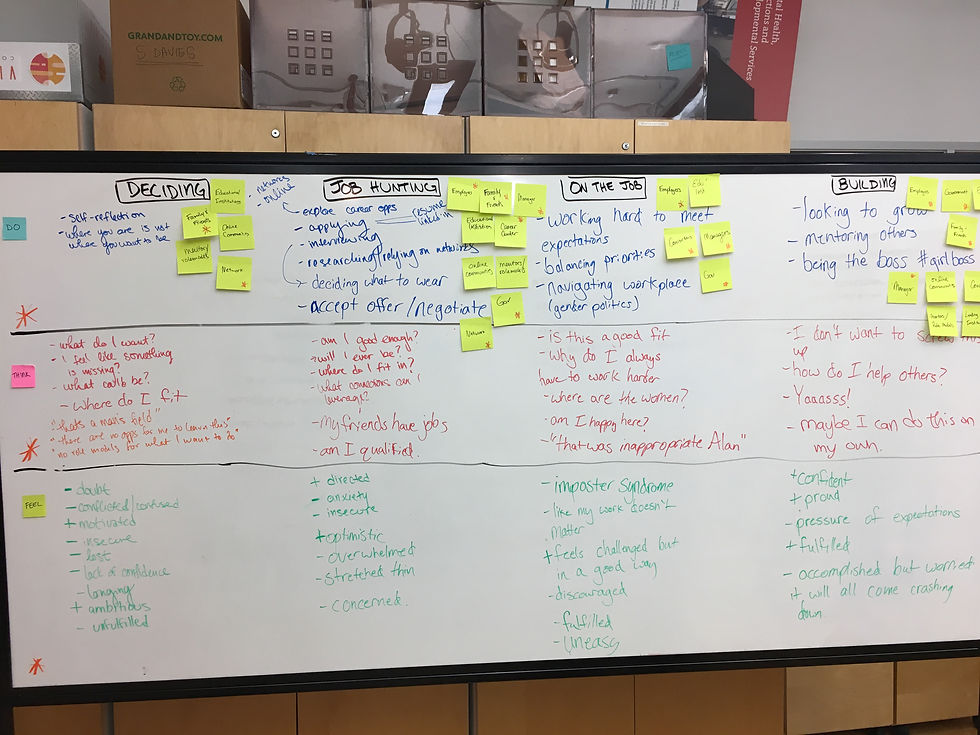 GRANDANDTOY.COM
S. DAVIES
tal Health,
ctions and
lopmental Services
DO
THINK
FEEL
DECIDING
- self-reflection
- where you are is not
where you want to be
Educational
Institutions
Family &
Friends
Online
Communities
Network
- What do I want?
- I feel like something
is missing?
- what could be?
- Where do I fit
"that's a man's field"
"there are no opps for me to learn this"
"no role models for what I want to do"
- doubt
- conflicted/confused
+ motivated
- insecure
- lost
- lack of confidence
- longing
+ ambitious
- unfulfilled
JOB HUNTING
- networks
- online
- explore career opps
- applying
resume
linked in
- interviewing
- researching/relying on networks
- deciding what to wear
- accept offer/negotiate
Employers
Family
& Friends
Manager
Educational
Institution
Career
Center
online
communities
mentors/
rolemodels
Gov
Network
- am I good enough?
- will I ever be?
- where do I fit in?
- what connections can I
leverage?
- my friends have jobs
- am I qualified.
+ directed
- anxiety
- insecure
+ optimistic
- overwhelmed
- stretched thin
- concerned.
ON THE JOB
- working hard to meet
expectations
- balancing priorities
- navigating workplace
(gender politics)
Employers
Edu
Inst
Coworkers
Managers
Gov
- is this a good fit
- Why do I always
have to work harder
- where are the women?
- am I happy here?
- "that was inappropriate Alan"
- imposter syndrome
- like my work doesn't
matter
+ feels challenged but
in a good way
- discouraged
- fulfilled
- uneasy
BUILDING
- looking to grow
- mentoring others
- being the boss #girlboss
Employers
Governmen
Family
Friends
Manager
online
Communities
Mentors/
Role Models
- I don't want to screw this
up
- how do I help others?
- Yaaasss!
- maybe I can do this on
my own.
+ confident
+ proud
- pressure of expectations
+ fulfilled
- accomplished but worried
it will all come crashing
down.